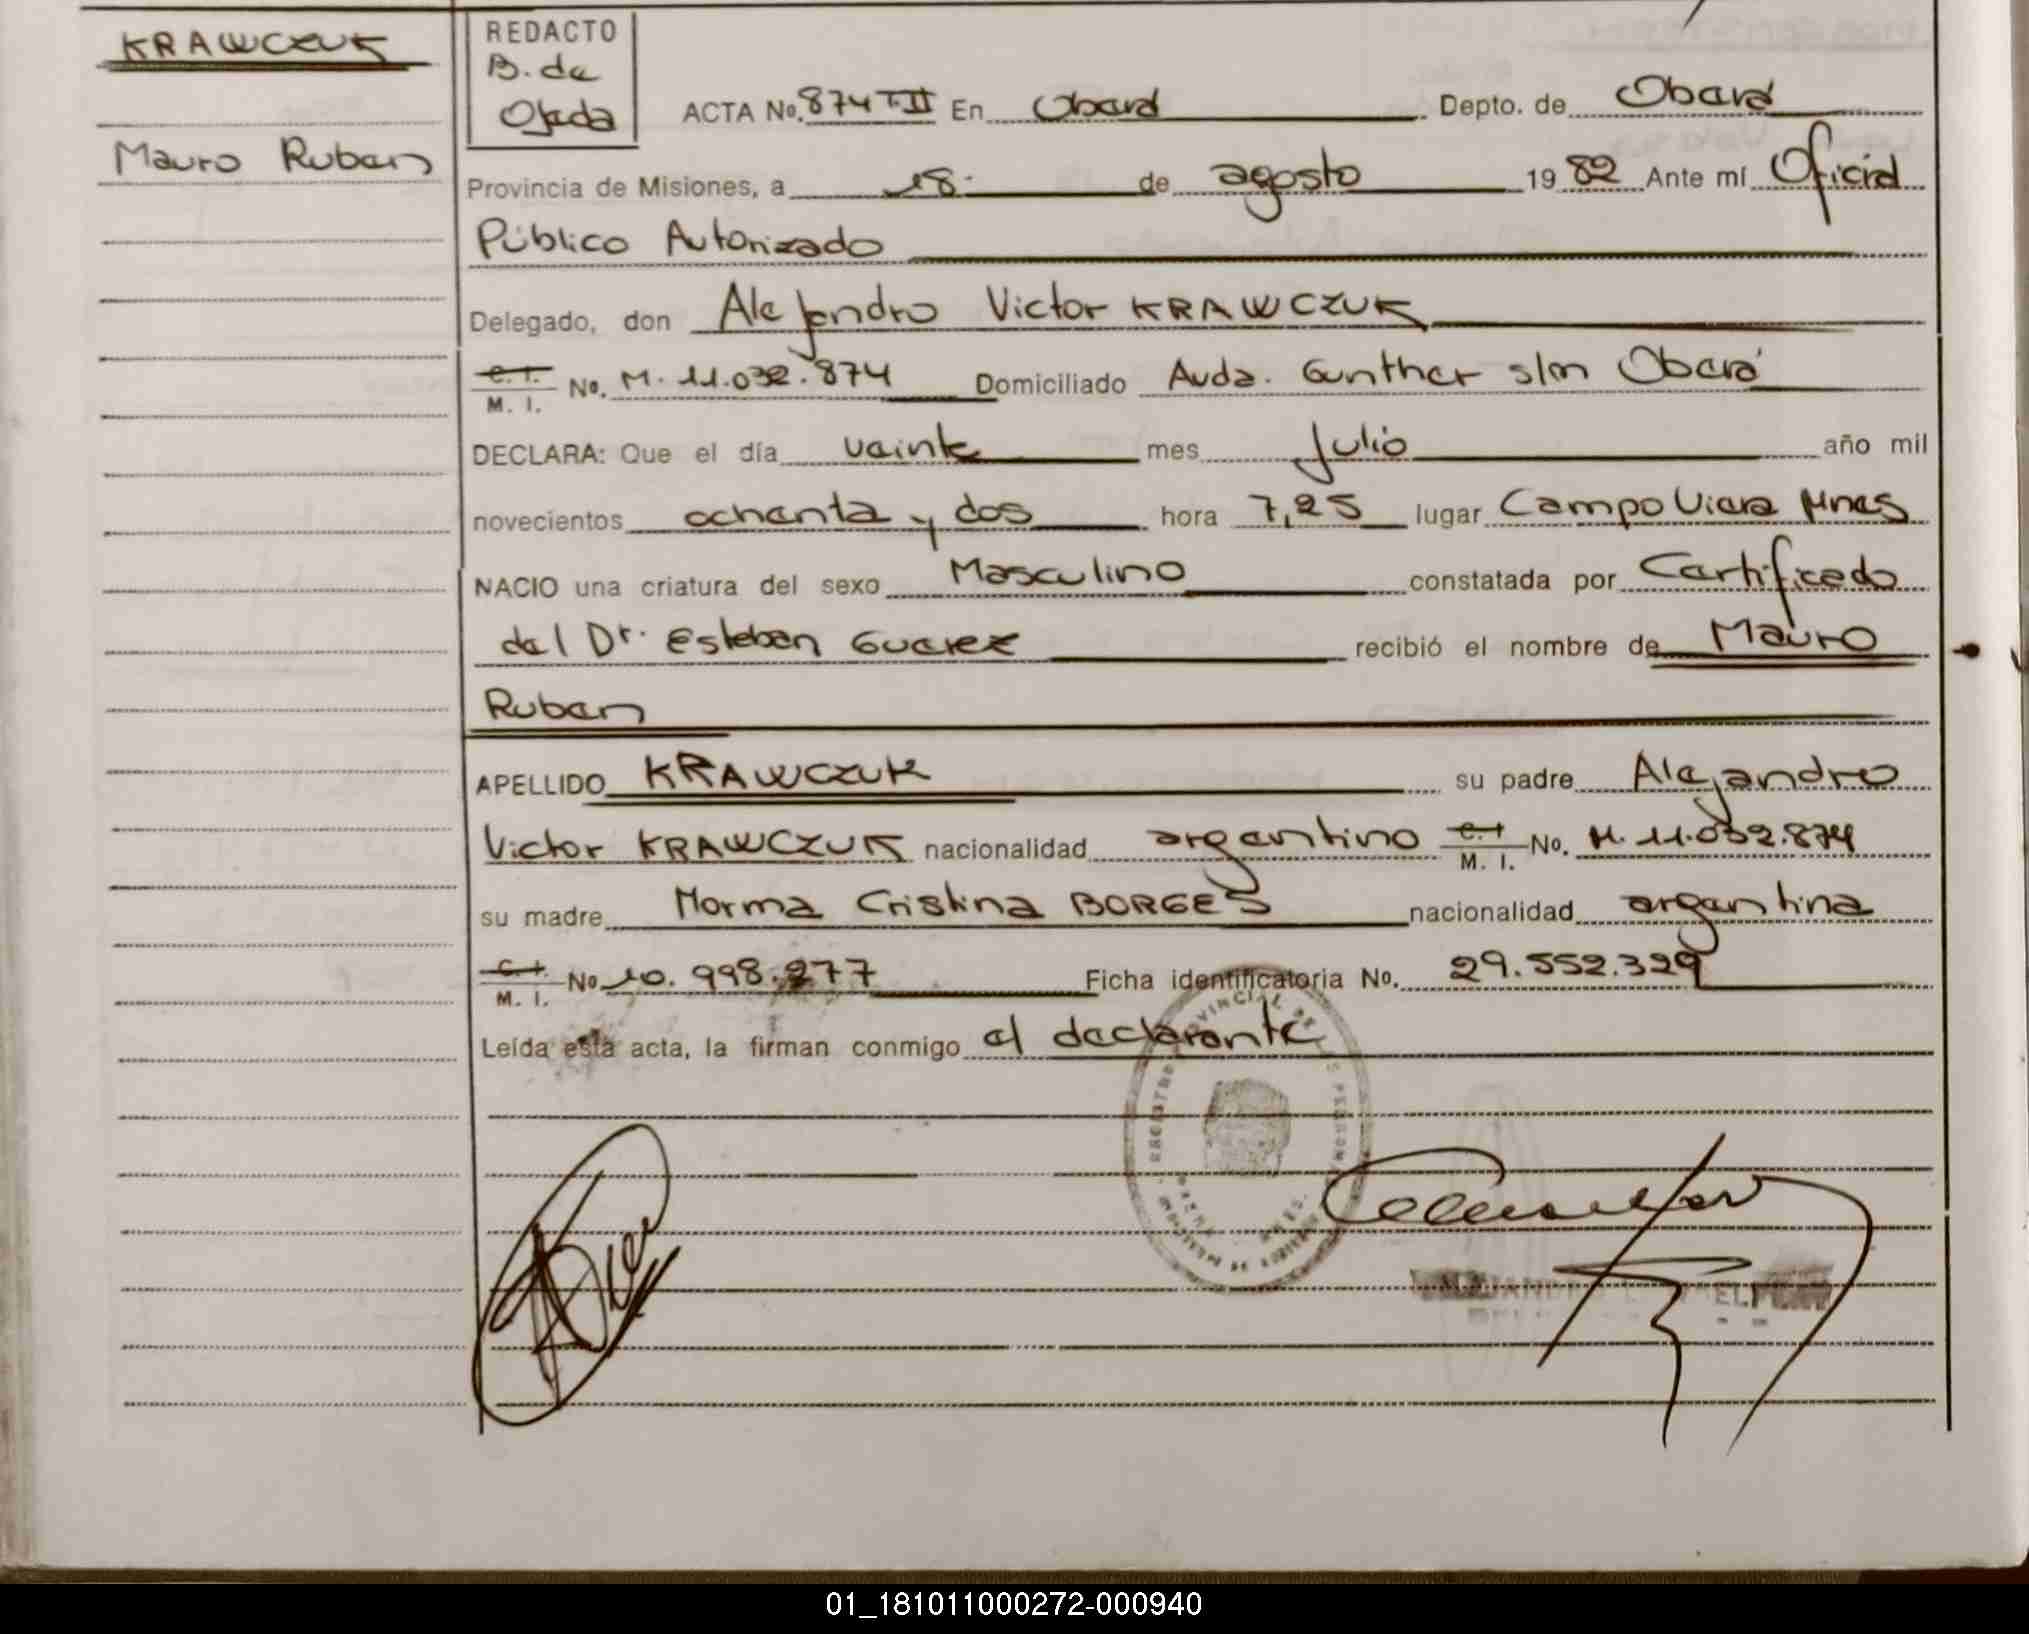 KRAWCZUK
Mauro Ruben
REDACTO
B. de
Ojeda
ACTA No. 874 T-II En Oberá Depto. de Oberá
Provincia de Misiones, a 18 de agosto 1982 Ante mí Oficial
Público Autorizado
Delegado, don Alejandro Victor KRAWCZUK
C. I. M. I. No. M. 11.032.874 Domiciliado Avda. Gunther s/n Oberá
DECLARA: Que el día veinte mes Julio año mil
novecientos ochenta y dos hora 7,25 lugar Campo Viera Mnes
NACIO una criatura del sexo Masculino constatada por Certificado
del Dr. Esteban recibió el nombre de Mauro
Ruben
APELLIDO KRAWCZUK su padre Alejandro
Victor KRAWCZUK nacionalidad argentino C. I. M. I. No. M. 11.032.874
su madre Norma Cristina BORGES nacionalidad argentina
C. I. M. I. No 10.998.277 Ficha identificatoria No. 29.552.329
Leída esta acta, la firman conmigo el declarante
01_181011000272-000940